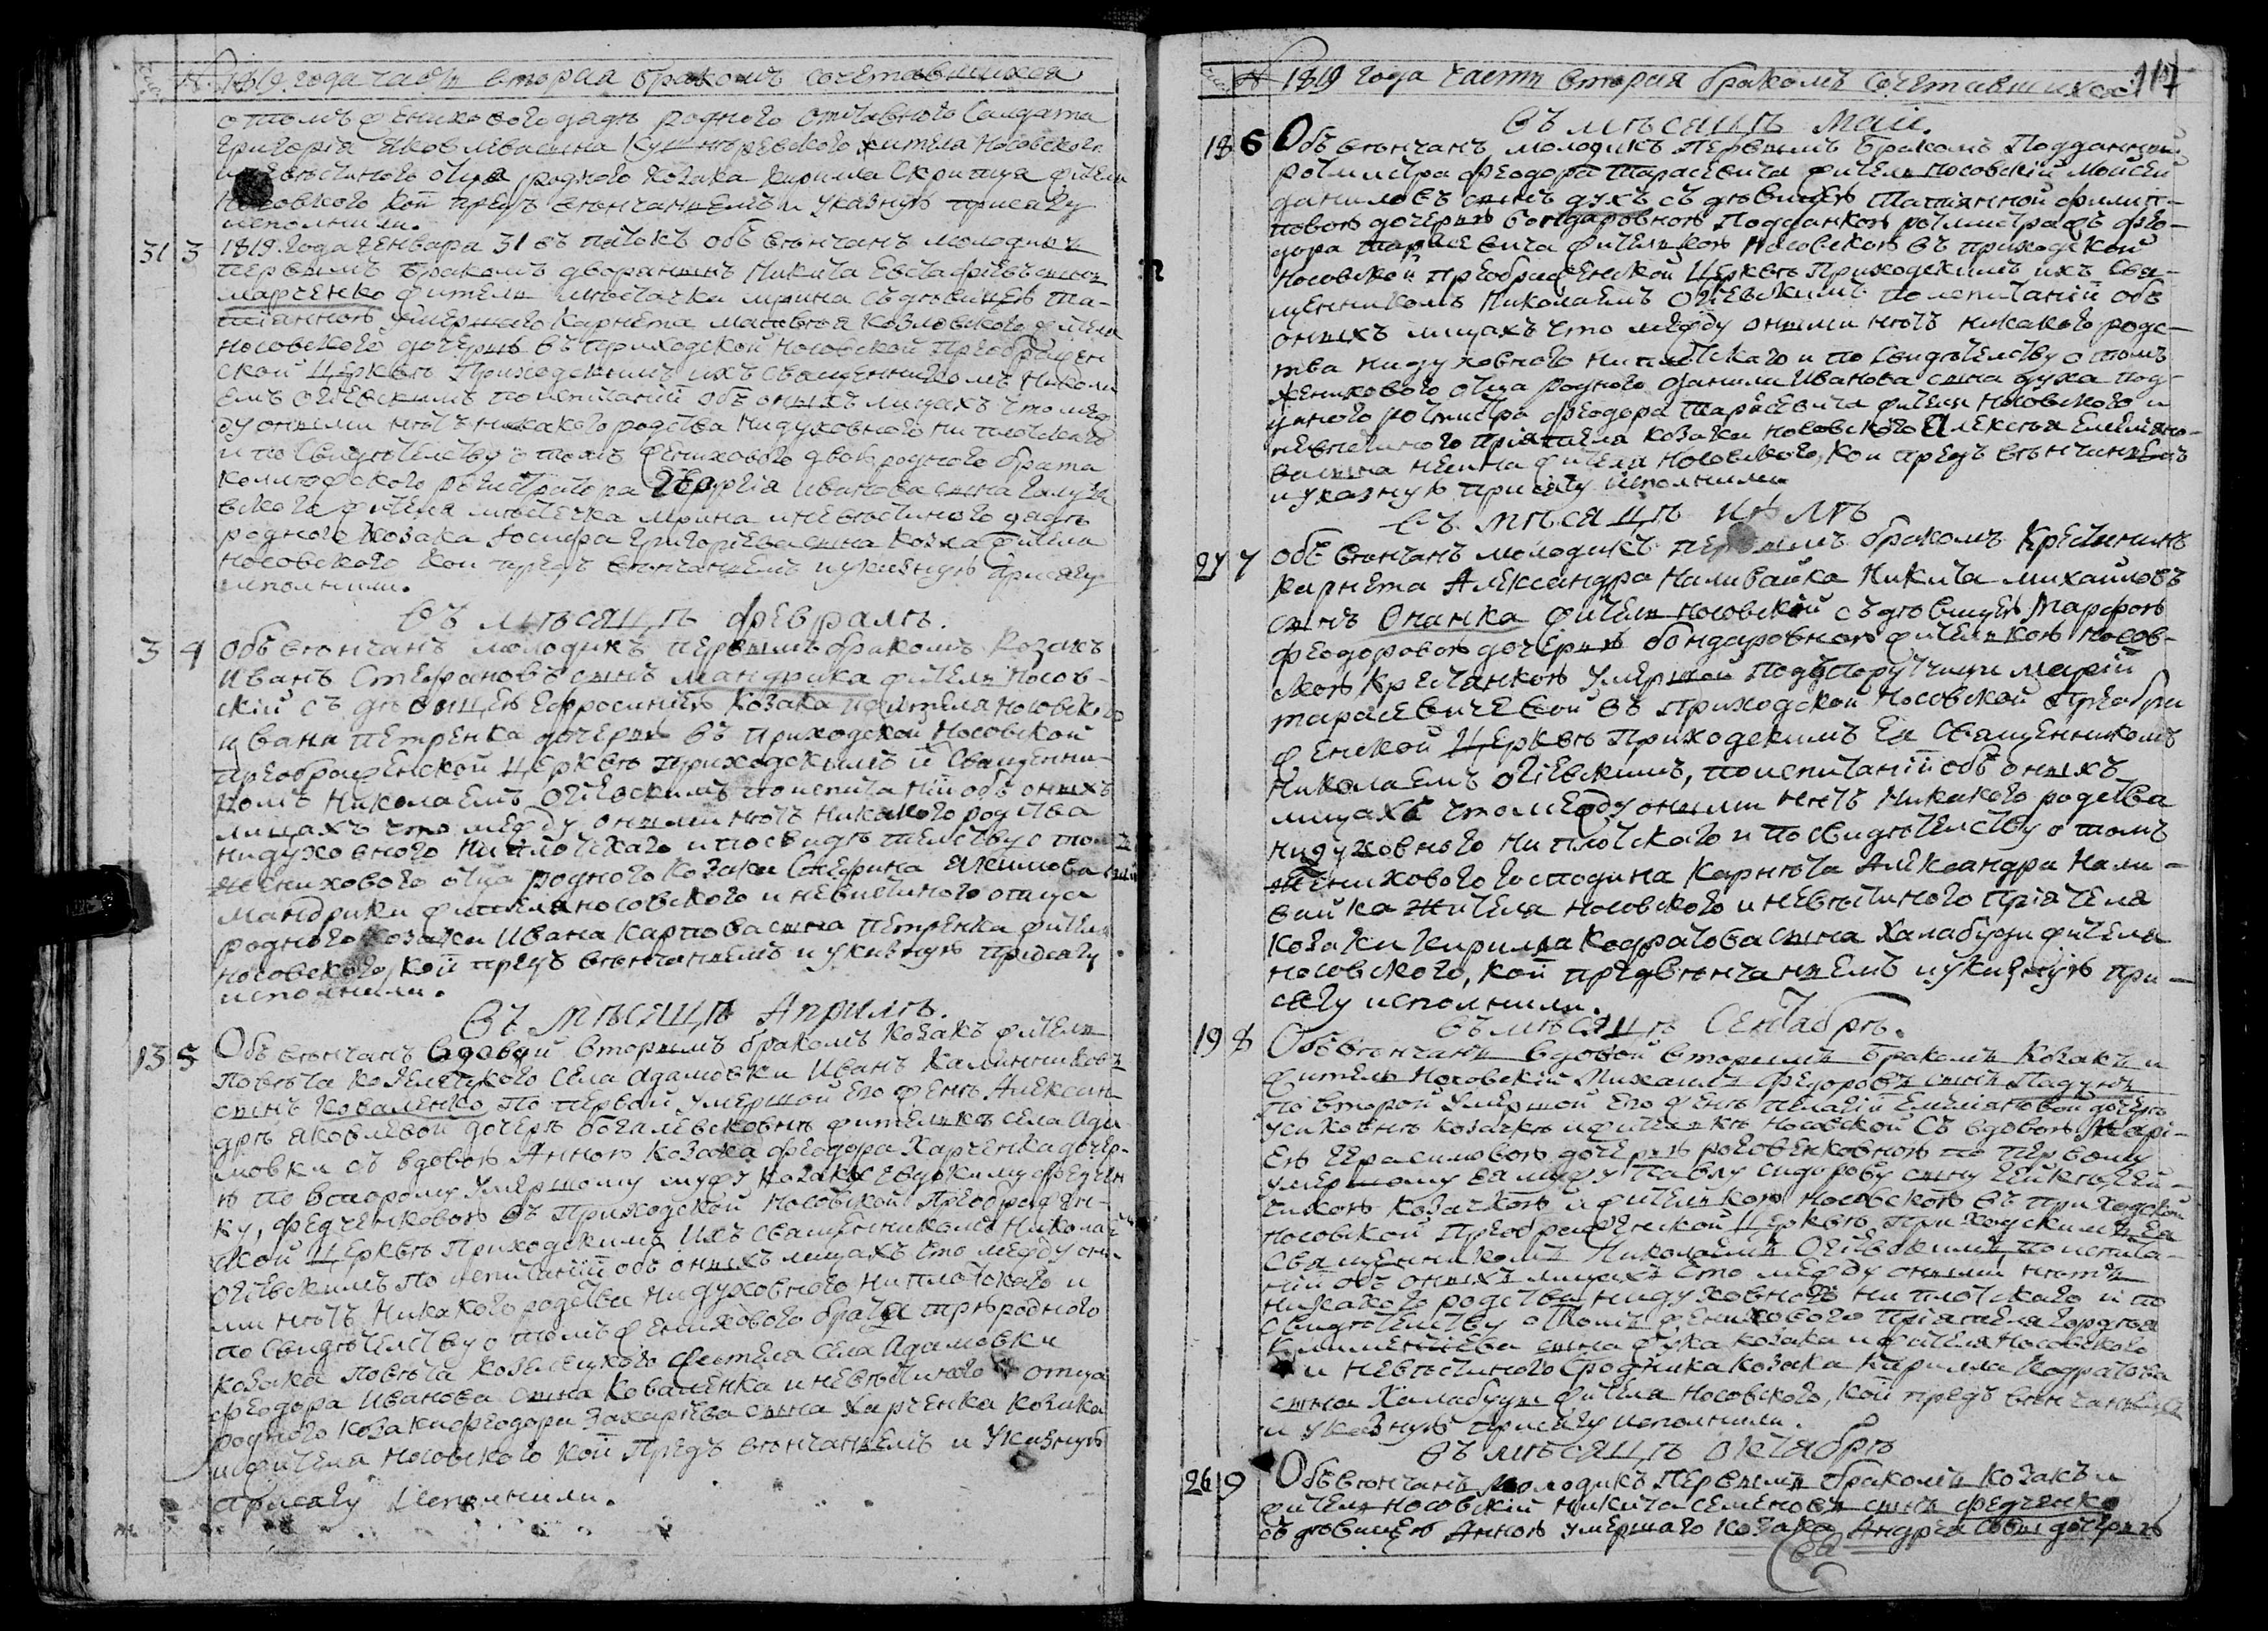 № 1819. года часть вторая бракомъ сочетавшихся
о томъ женихового дядѣ родного отставного Салдата
Григорія Яковлева сына Кушнѣревского жителя Носовского
и невѣстиного отца родного козака Кирила Скрипця жителя
Носовского кои предъ вѣнчаніемъ и указную присягу
исполнили.
31 3 1819. года генваря 31 въ пятокъ обвѣнчанъ молодикъ
первымъ бракомъ дворянинъ Никита Евстафіевъ сынъ
Марченко житель мѣстечка Мрина съ дѣвицею та-
тіанною умершаго карнета Матвѣя Козловского жителя
носовского дочерью въ приходской Носовской Преображен
ской Церквѣ Приходскимъ ихъ священникомъ Никола
емъ Огіевскимъ по испитаніи объ оныхъ лицахъ что меж
ду оными нѣтъ никакого родства ни духовного ни плотскаго
и по свидѣтелству о томъ женихового двоюродного брата
колежского регистратора Георгія Иванова сына
вского жителя мѣстечка Мрина и невѣстиного дядѣ
родного козака Іосифа Григоріева сына Козла жителя
Носовского кои предъ вѣнчаніемъ и указную присягу
исполнили.
Въ мѣсяцѣ февралѣ.
3 4 Обвѣнчанъ молодикъ первымъ бракомъ Козакъ
Иванъ Стефановъ сынъ Мандрика житель Носов-
скій съ дѣвицею Ефросиніею Козака жителя Носовского
Ивана Петренка дочерью въ приходской Носовской
преображенской церквѣ приходскимъ и Священни-
комъ Николаемъ Огіевскимъ по испитаніи объ оныхъ
лицахъ что между оными нѣтъ никакого родства
ни духовного ни плотскаго и по свидѣтелству о томъ
женихового отца родного козака Стефана Якимова сына
Мандрики жителя носовского и невѣстиного отца
родного козака Ивана Карпова сына Петренка жителя
носовского, кои предъ вѣнчаніемъ и указную присягу
исполнили.
Въ мѣсяцѣ Априлѣ.
13 5 Обвѣнчанъ вдовой вторымъ бракомъ козакъ житель
повѣта козелецкого села Адамовки Иванъ Калинниковъ
сынъ Коваленко по первой умершой его женѣ Алексан-
дрѣ Яковлевой дочерѣ Богалевсковнѣ жителкѣ села Ада
мовки съ вдовою Анною козака Феодора Харченка дочер-
ю по второму умершому мужу козаку Евдокиму Федчен
ку, Федченковою въ Приходской Носовской Преображен-
ской Церквѣ Приходскимъ ихъ священникомъ Николаемъ
Огіевскимъ по испитаніи объ оныхъ лицахъ что между оны-
ми нѣтъ никакого родства ни духовного ни плотского и
по свидѣтелству о томъ женихового брата трѣродного
козака повѣта козелецкого жителя села Адамовки
Феодора Иванова сына Коваленка и невѣстиного отца
родного козака Феодора Захаріева сына Харченка козака
и жителя носовского кои Предъ вѣнчаніемъ и Указную
присягу исполнили.
№ 1819 года часть вторая бракомъ сочетавшихся 117
Въ мѣсяцѣ Маіи.
18 6 Обвѣнчанъ молодикъ первымъ бракомъ Подданный
ротмистра Феодора Тарасевича житель Носовскій Моисей
Даниловъ сынъ Духъ съ дѣвицею Татіянною Филип-
повою дочерью Бондаровною Подданкою ротмистравъ Фео-
дора Тарасевича жителькою Носовскою въ приходской
Носовской преображенской Церквѣ Приходскимъ ихъ Свя-
щенникомъ Николаемъ Огіевскимъ по испитаніи объ
оныхъ лицахъ что между оными нѣтъ никакого родс-
тва ни духовного ни плотского и по свидѣтелству о томъ
женихового отца родного Данила Иванова сына Духа под-
даного ротмистра Феодора Тарасевича жителя Носовского и
невѣстиного пріятеля козака носовского Алексѣя Емеліяно-
ва сына жителя Носовского, кои предъ вѣнчаніемъ
и указную присягу исполнили
Въ мѣсяцѣ Июлѣ
27 7 Обвѣнчанъ молодикъ первымъ бракомъ Крестянинъ
карнета Александра Наливайка Никита Михайловъ
сынъ Онанка житель носовскій съ дѣвицею Марфою
Феодоровою дочерью Бондаровною жителькою Носов-
скою Крестянкою умершой Подпоручици Маріи
Тарасевичевой въ Приходской Носовской Преобра
женской Церквѣ Приходскимъ Ея Священникомъ
Николаемъ Огіевскимъ, по испитаніи объ оныхъ
лицахъ что между оными нѣтъ никакого родства
ни духовного ни плотского и по свидѣтелству о томъ
женихового господина Карнета Александра Нали-
вайка жителя Носовского и невѣстиного пріятеля
козака Кирила Кодратова сына Халабуди жителя
носовского, кои предвѣнчаніемъ и указную при-
сягу исполнили.
Въ мѣсяцѣ Сентябрѣ.
19 8 Обвѣнчанъ вдовой вторимъ бракомъ козакъ и
житель Носовскій Михаилъ Федоровъ сынъ Падунъ
по второй умершой его женѣ Пелагіи Емеліяновой дочерѣ
Усиковнѣ козачкѣ и жителькѣ Носовской съ вдовою Марі-
ею Герасимовою дочерью роговенковною по первому
умершому ея мужу Павлу Сидорову сыну
козачкою и жителькою носовскою въ приходской
носовской Преображенской Церквѣ Приходскимъ Ея
Священникомъ Николаемъ Огіевскимъ по испита-
ніи объ онихъ лицахъ что между оными нѣтъ
никакого родства ни духовного ни плотского и по
свидѣтелству о томъ жениховаго пріятеля Гордѣя
Климентіева сына Жука козака и жителя Носовского
и невѣстиного сродника козака Кирилла Кодратова
сына Халабуди жителя носовского, кои предъ вѣнчаніемъ
и указную присягу исполнили.
Въ мѣсяцѣ октябрѣ
26 9 Обвѣнчанъ молодикъ первымъ бракомъ козакъ и
житель носовскій Никита Семеновъ сынъ Федченко
съ дѣвицею Анною умершаго козака Андрея дочерью